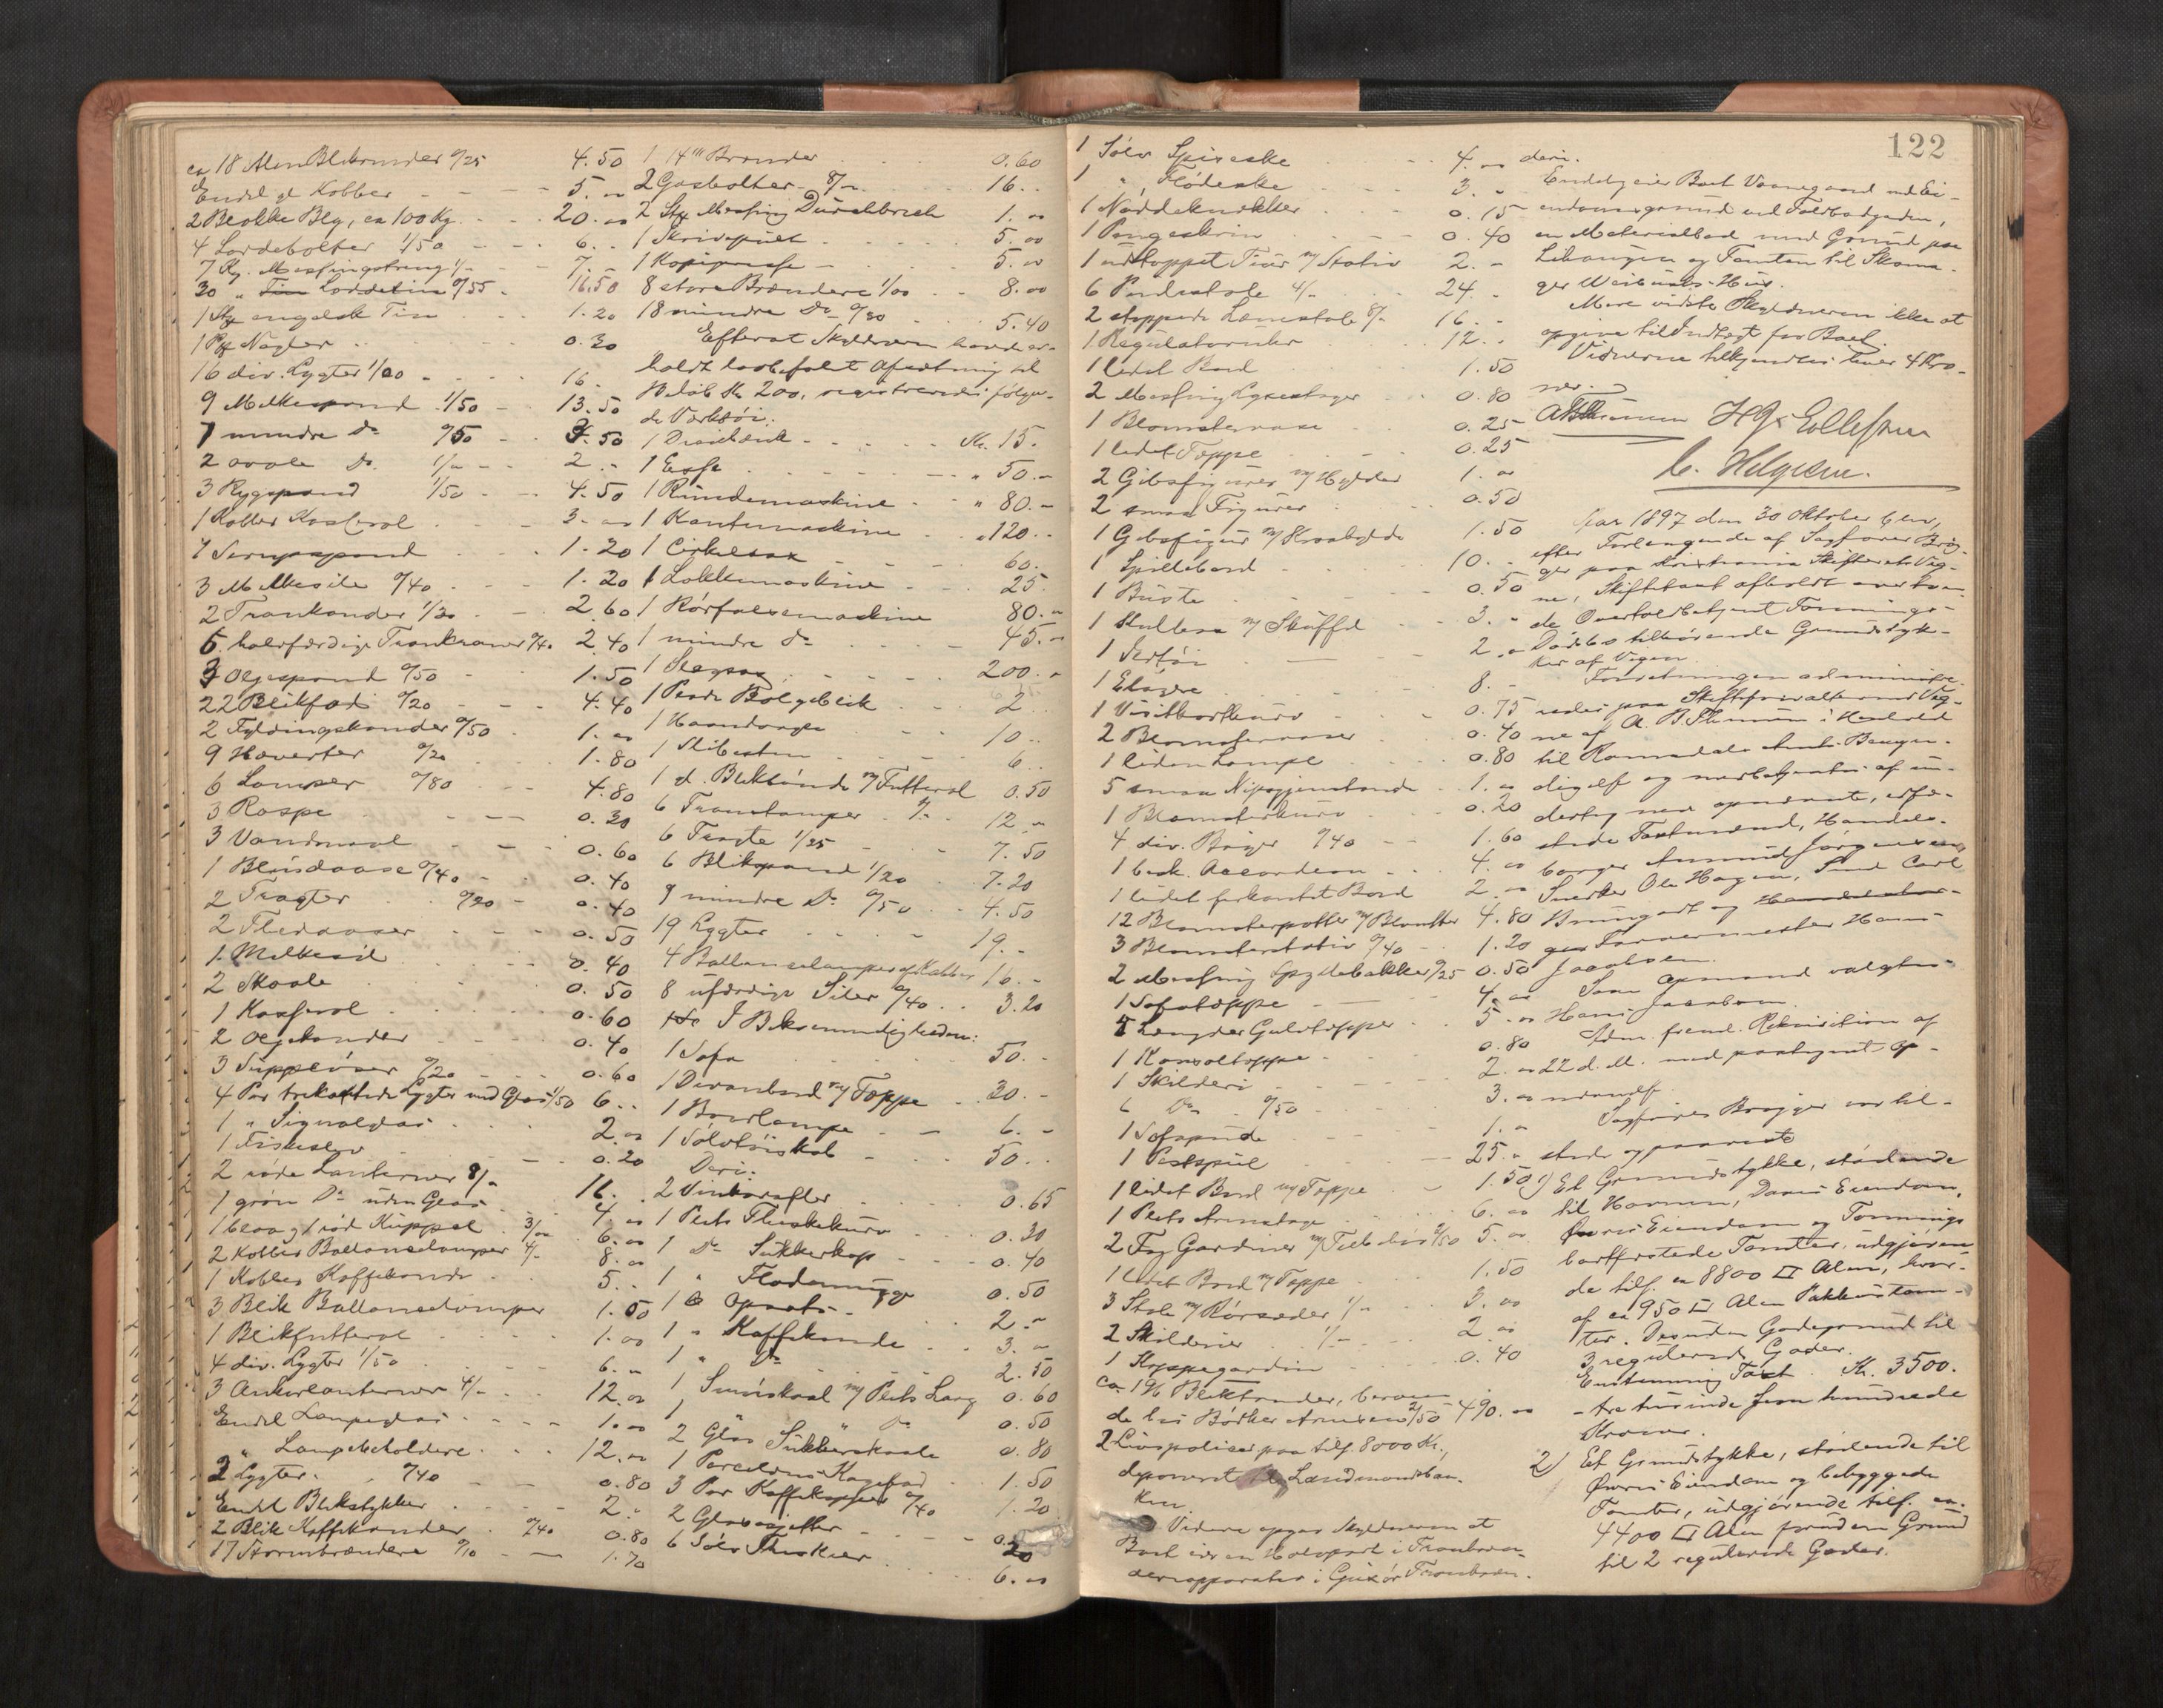 ca 18 Alen Blikrender 0/25 4.50
Endel gl Kobber 5. "
2 Blokke Bly, ca 100 Kg. 20. "
4 Loddebolter 1/50 6. "
7 Kg. Messingstreng 1/- 7. -
30 " Loddetin 0/55 16.50
1 Stg engelsk Tin 1.20
1 Pk Nagler 0.30
16 div. Lygter 1/00 16. -
9 Melkespand 1/50 13.50
7 mindre Do 0/50 3.50
2 ovale Do. 1/- 2. -
3 Rygspand 1/50 4.50
1 Kobber Kasserol 3. "
1 Serupspand 1.20
3 Melkesile 0/40 1.20
2 Trankander 1/30 2.60
6 halvfærdige Trankraner 0/40 2.40
3 Oljespand 0/50 1.50
22 Blikfad 0/20 4.40
2 Fyldingskander 0/50 1. "
9 Hæverter 0/20 1.80
6 Lamper 0/80 4.80
3 Raspe 0.30
3 Vandmaal 0.60
1 Blindaase 0/40 0.40
2 Tragter 0/20 0.40
2 0.50
1 Melkesil 0.40
2 Skaale 0.50
1 Kasserol 0.60
2 Oljekander 0.40
3 Suppeøser 0/20 0.60
4 Par trekantede Lygter med Glas 1/50 6. -
1 " Signalglas 2. "
1 Fiskeslev 0.20
2 røde Lanterner 8/- 16. -
1 grøn Do uden Glas 4. "
1 blaa og 1 rød Kuppel 3/00 6. "
2 Kobber Ballanselamper 4/- 8. "
1 Kobber Kaffekande 5. -
3 Blik Ballanselamper 1.50
1 Blikfutteral 1. "
4 div. Lygter 1/50 6. "
3 Ankerlanterner 4/- 12. "
Endel Lampeglas 1. "
" Lampebeholdere 12. "
2 Lygter 0/40 0.80
Endel Blikstykker 2. "
2 Blik Kaffekander 0/40 0.80
17 Stormbrændere 0/10 1.70
1 14''' Brænder 0.60
2 Gasbolter 8/- 16. -
2 Stg Messing Durchbruch 1. "
1 Skrivepult 5. "
1 Kopipresse 5. "
8 store Brændere 1/00 8. "
18 mindre Do 0/30 5.40
Efterat Skyldneren havde er-
holdt lovbefalet Afsætning til
Beløb Kr 200, registreredes følgen-
de Værktøi:
1 Dreiebænk Kr. 15. -
1 Esse " 50. -
1 Rundemaskine " 80. -
1 Kantemaskine " 120. -
1 Cirkelsax 60. -
1 Lokkemaskine 25. -
1 Rørfalsemaskine 80. -
1 mindre Do 45. -
1 Slagsax 200. -
1 Plade Bølgeblik 2. -
1 Haandvogn 10. -
1 Slibesten 6. -
1 gl. Bliktønde m/ Futteral 0.50
6 Tranlamper 2/- 12. "
6 Tragte 1/25 7.50
6 Blikspand 1/20 7.20
9 mindre Do 0/50 4.50
19 Lygter 19. -
4 Ballanselamper af Kobber 16. -
8 ufærdige Siler 0/40 3.20
I Beboernuligheden:
1 Sofa 50. -
1 Divanbord m/ Teppe 30. -
1 Bordlampe 6. -
1 Sølvtøiskab 50. -
Deri:
2 Vinkarafler 0.65
1 Plets Flaskekurv 0.30
1 Do Sukkerkop 0.40
1 " Flødemugge 0.50
1 " Opsats 2. -
1 " Kaffekande 3. "
1 " Do 2.50
1 Smørskaal m/ Plets Laag 0.60
1 " " Do 0.50
2 Glas Sukkerskaale 0.80
1 Porcelæns Kagefad 1.50
3 Par Kaffekopper 0/40 1.20
2 Glasasjetter 0.20
6 Sølv Theskeer 6. "
122
1 Sølv Spiseske 4. "
1 " Flødeske 3. "
1 Nøddeknækker 0.15
1 Pengeskrin 0.40
1 udstoppet Tiur m/ Stativ 2. -
6 Pindestole 4/- 24. -
2 stoppede Lænestole 8/- 16. -
1 Regulatoruhr 12. -
1 lidet Bord 1.50
2 Messing Lysestager 0.80
1 Blomstervase 0.25
1 lidet Teppe 0.25
2 Gibsfigurer m/ Hylder 1. "
2 smaa Figurer 0.50
1 Gibsfigur m/ Kraahylde 1.50
1 Spillebord 10. -
1 Buste 0.50
1 Skultera m/ Skuffel 3. "
1 Fyrtøi 2. "
1 Etagere 8. -
1 Visitkortkurv 0.75
2 Blomstervaser 0.40
1 liden Lampe 0.80
5 smaa Nipsgjenstande 1. "
1 Blomsterkurv 0.20
4 div. Bøger 0/40 1.60
1 besk. Accordeon 4. "
1 lidet firkantet Bord 2. "
12 Blomsterpotter m/ Blomster 4.80
3 Blomsterstativ 0/40 1.20
2 Messing Spyttebakker 0/25 0.50
1 Sofateppe 4. "
5 Længder Gulvtepper 5. "
1 Konsolteppe 0.80
1 Skilderi 2. "
6 Do 0/50 3. "
1 Sofapude 1. "
1 Pidspeil 25. "
1 lidet Bord m/ Teppe 1.50
1 Plets Armstage 6. "
2 Fag Gardiner m/ Tilbehør 2/50 5. "
1 lidet Bord m/ Teppe 1.50
3 Stole m/ Rørsæder 1/- 3. "
2 Skilderier 1/- 2. "
1 Kappegardin 0.40
ca. 196 Bliktønder, beroen-
de hos Bødker Arnesen 2/50 490. "
2 Livspoliser paa tils. 8000 Kr.,
deponeret i Landmandsban-
ken.
Videre opgav Skyldneren at
Boet eier en Halvpart i Tranbræn-
deriapparater i Tranbræn-
deri.
Endelig eier Boet Vaanegaard med Ei-
endomsgrund ved Toldbodgaden,
en Materialbod med Grund paa
og Tomten til Skoma-
ger Hus.
Mere vidste Skyldneren ikke at
opgive til Indtægt for Boet.
Vidnerne tilkjendtes hver 4 Kro-
ner.
HJ Ellefsen
C. Helgesen.
Aar 1897 den 30 Oktober blev,
efter Forlangende af Sagfører Brøg-
ger paa Kristiania Skifterets Veg-
ne, Skiftetaxt afholdt over hen-
de Overtoldbetjent Tonnings
Dødsbo tilhørende Grundstyk-
ker af Vegen.
Forretningen administre-
redes paa Skifteforvalterens Veg-
ne af A. B. i Henhold
til Romsdals Amts Bemyn-
digelse og medbetjentes af un-
dertegnede opnævnte, edfæ-
stede Taxtmænd, Handels-
borger Amund Jørgensen,
Snedker Ole Hagen, Smed Carl
Brungodt og
Farvermester Hans
Jacobsen.
Som Opmand valgtes
Hans Jacobsen.
Adm. freml. Rekvisition af
22 d. M. med paategnet Op-
nævnelse.
Sagfører Brøgger var til-
stede og paaviste
1) Et Grundstykke, stødende
til Havnen, Davis Eiendom,
Øwris Eiendom og Tonnings
bortfæstede Tomter, udgjøren-
de tils. ca 8800 □ Alen, hvor-
af ca 950 □ Alen Pakhustom-
ter. Desuden Gadegrund til
3 regulerede Gader.
Enstemmig Taxt Kr. 3500.
- tre tusinde fem hundrede
Kroner.
2) Et Grundstykke, stødende til
Øwris Eiendom og bebyggede
Tomter, udgjørende tils. ca.
4400 □ Alen foruden Grund
til 2 regulerede Gader.